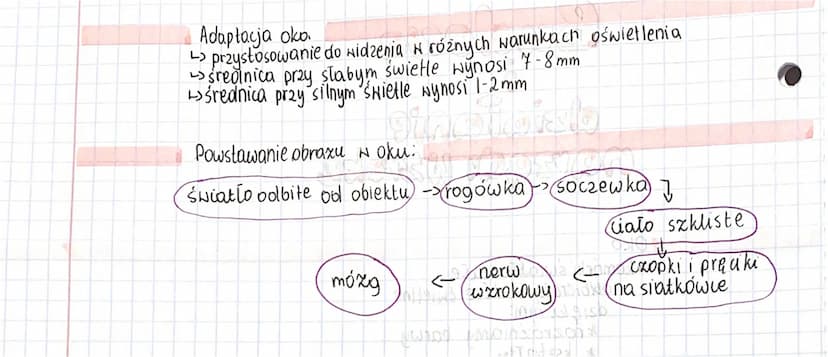 Adaptacja oka.
↳ przystosowanie do widzenia w różnych warunkach oświetlenia
↳ średnica przy słabym świetle wynosi 7-8mm
↳ średnica przy silnym świetle wynosi 1-2mm
Powstawanie obrazu w oku:
światło odbite od obiektu → rogówka → soczewka
ciało szkliste
czopki i pręciki
na siatkówce
← nerw
wzrokowy
← mózg